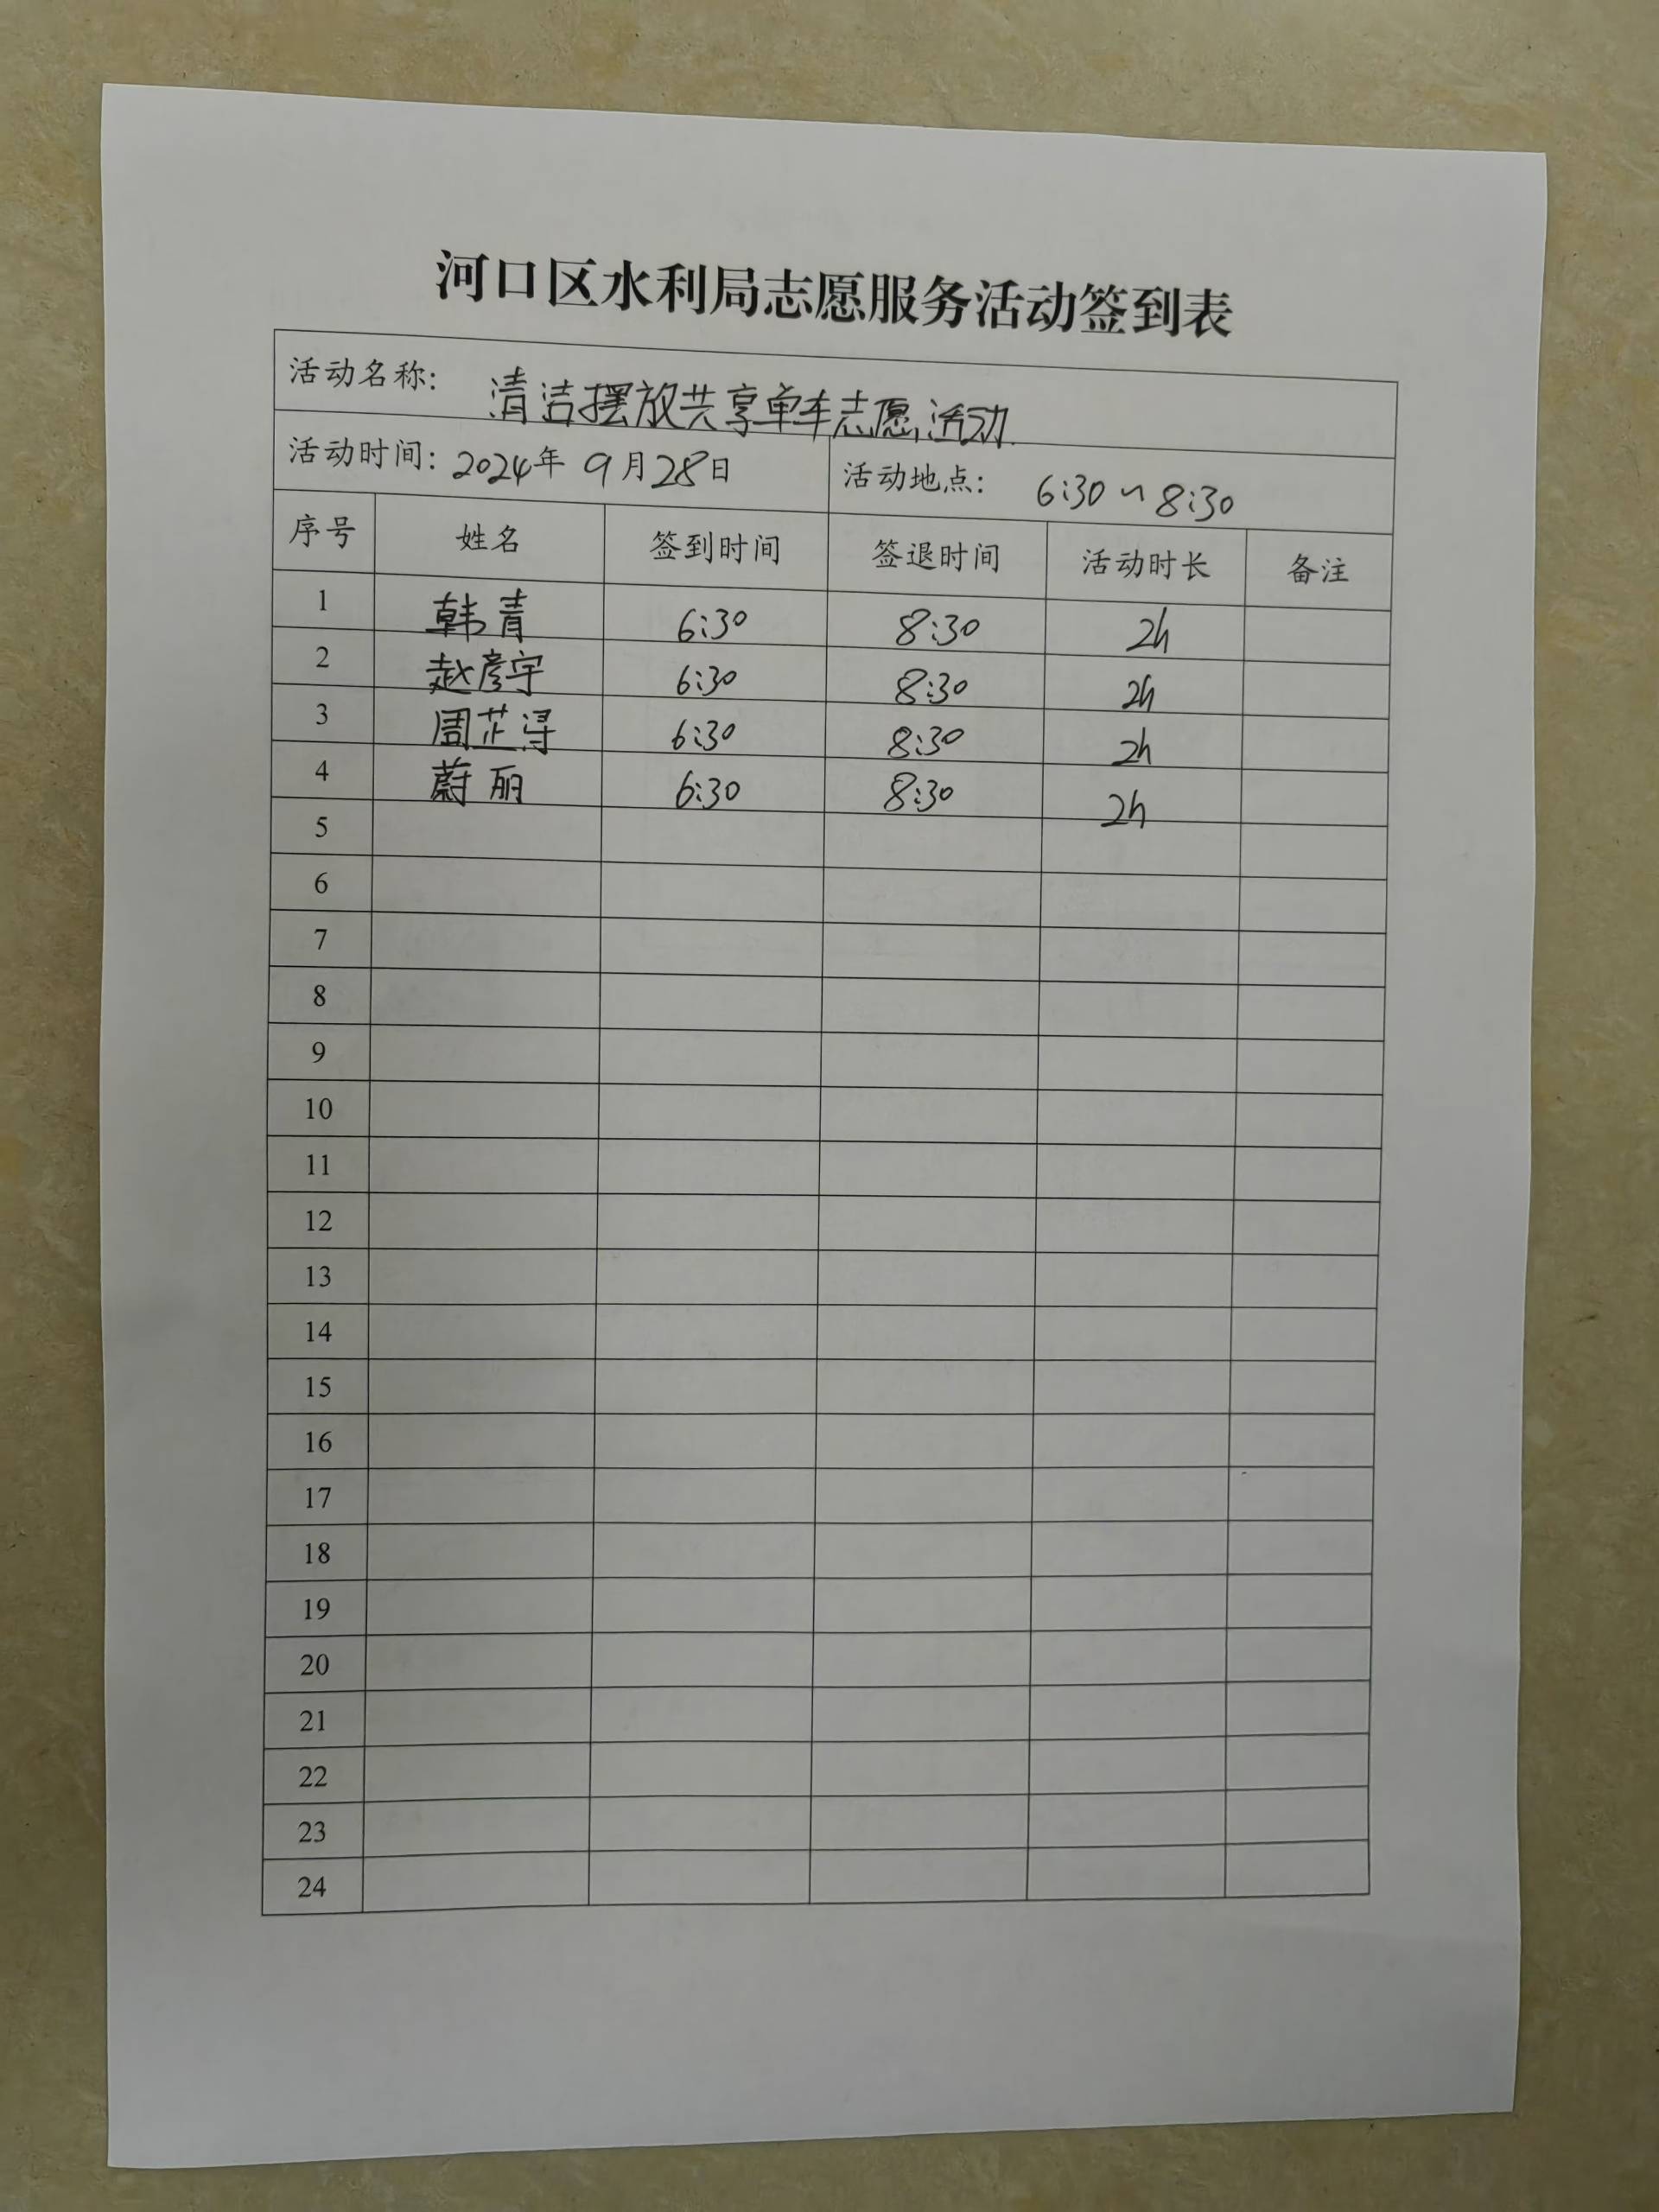 河口区水利局志愿服务活动签到表
活动名称: 清洁摆放共享单车志愿活动.
活动时间: 2024年 9月28日 活动地点: 6:30~8:30
序号 姓名 签到时间 签退时间 活动时长 备注
1 韩青 6:30 8:30 2h
2 赵彦宇 6:30 8:30 2h
3 周芷浔 6:30 8:30 2h
4 蔚丽 6:30 8:30 2h
5
6
7
8
9
10
11
12
13
14
15
16
17
18
19
20
21
22
23
24